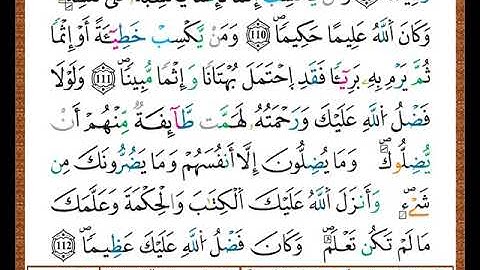 وَكَانَ اَللَّهُ عَلِيمًا حَكِيمًا ۝110 وَمَنْ يَّكْسِبْ خَطِيٓـَٔةً أَوِ اِثْمًا
ثُمَّ يَرْمِ بِهِۦ بَرِيٓـًٔا فَقَدِ اِحْتَمَلَ بُهْتَانًا وَإِثْمًا مُّبِينًا ۝111 وَلَوْلَا
فَضْلُ اُللَّهِ عَلَيْكَ وَرَحْمَتُهُۥ لَهَمَّت طَّآئِفَةٌ مِّنْهُمُۥ أَنْ
يُّضِلُّوكَ وَمَا يُضِلُّونَ إِلَّا أَنفُسَهُمْ وَمَا يَضُرُّونَكَ مِن
شَےْءٍ وَأَنزَلَ اَللَّهُ عَلَيْكَ اَلْكِتَٰبَ وَالْحِكْمَةَ وَعَلَّمَكَ
مَا لَمْ تَكُن تَعْلَمُ وَكَانَ فَضْلُ اُللَّهِ عَلَيْكَ عَظِيمًا ۝112